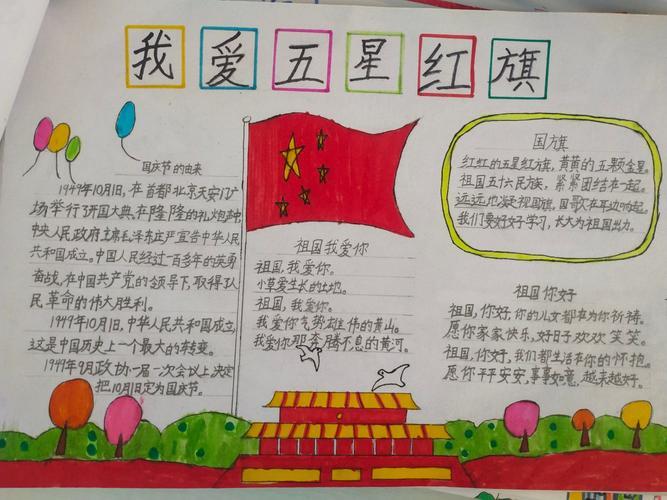 我爱五星红旗
国庆节的由来
1949年10月1日,在首都北京天安门广
场举行了开国大典,在隆隆的礼炮声中
中央人民政府主席毛泽东庄严宣告中华人民
共和国成立。中国人民经过一百多年的英勇
奋战,在中国共产党的领导下,取得了人
民革命的伟大胜利。
1949年10月1日,中华人民共和国成立,
这是中国历史上一个最大的转变。
1949年9月政协一届一次会议上决定
把10月1日定为国庆节。
祖国我爱你
祖国,我爱你。
小草爱生长的土地。
祖国,我爱你。
我爱你气势雄伟的黄山。
我爱你那奔腾不息的黄河。
国旗
红红的五星红旗,黄黄的五颗金星。
祖国五十六民族,紧紧团结在一起。
远远地凝视国旗,国歌在耳边响起。
我们要好好学习,长大为祖国出力。
祖国你好
祖国,你好,你的儿女都在为你祈祷。
愿你家家快乐,好日子欢欢笑笑。
祖国,你好,我们都生活在你的怀抱。
愿你平平安安,事事如意,越来越好。